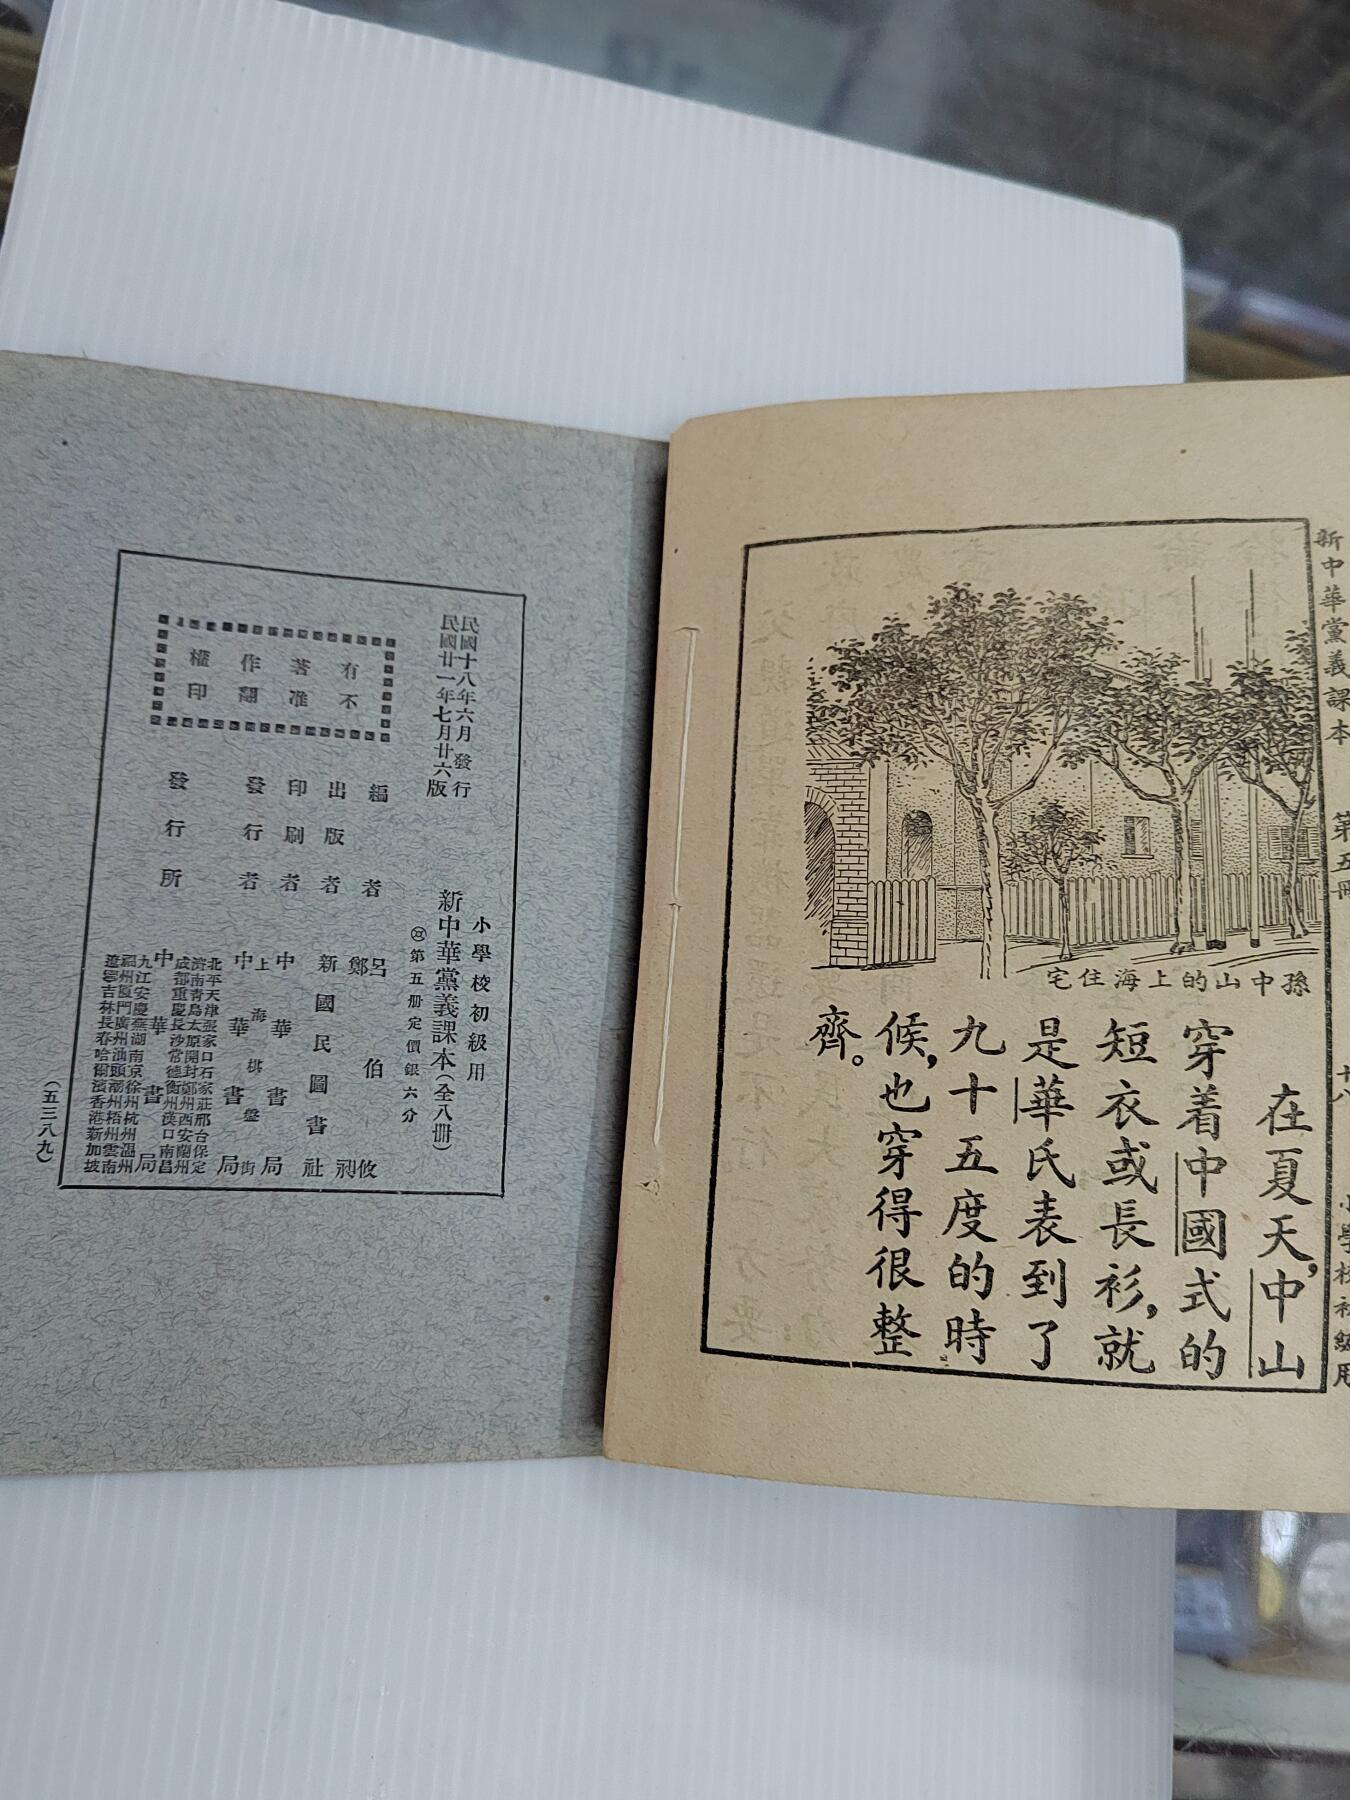 新中華黨義課本
第五冊
十八
小學校初級用
孫中山的上海住宅
在夏天,中山
穿着中國式的
短衣或長衫,就
是華氏表到了
九十五度的時
候,也穿得很整
齊。
民國十八年六月發行
民國廿一年七月廿六版
小學校初級用
新中華黨義課本(全八冊)
第五册定價銀六分
有著作權
不准翻印
編者
呂伯攸
鄭昶
出版者
新國民圖書社
印刷者
中華書局
上海棋盤街
發行者
中華書局
發行所
中華書局
北平天津張家口石家莊邢台保定
濟南青島太原開封鄭州西安蘭州
成都重慶長沙常德衡州漢口南昌
九江安慶蕪湖南京徐州杭州溫州
福州廈門廣州汕頭潮州梧州雲南
遼寧吉林長春哈爾濱香港新加坡
(五三八九)